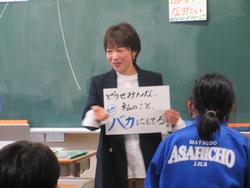 なりたい
どうせみんな、
私のこと、
バカにしてる
MATSUDO
ASAHICHO
J.H.S